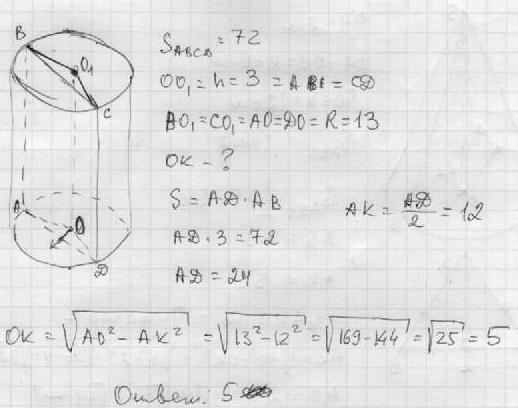 B
O₁
C
A
O
D
S_ABCD = 72
OO₁ = h = 3 = AB = CD
BO₁ = CO₁ = AO = DO = R = 13
OK - ?
S = AD · AB
AD · 3 = 72
AD = 24
AK = AD/2 = 12
OK = √(AO² - AK²) = √(13² - 12²) = √(169 - 144) = √25 = 5
Ответ: 5